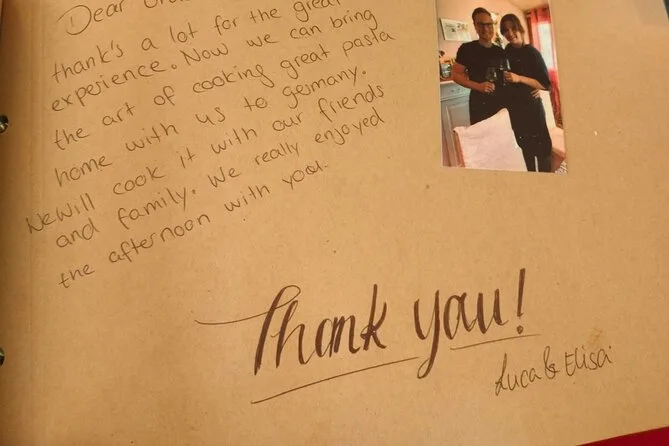 Dear
thank's a lot for the great
experience. Now we can bring
the art of cooking great pasta
home with us to germany.
WeWill cook it with our friends
and family. We really enjoyed
the afternoon with you.
Thank you!
Luca & Elisa